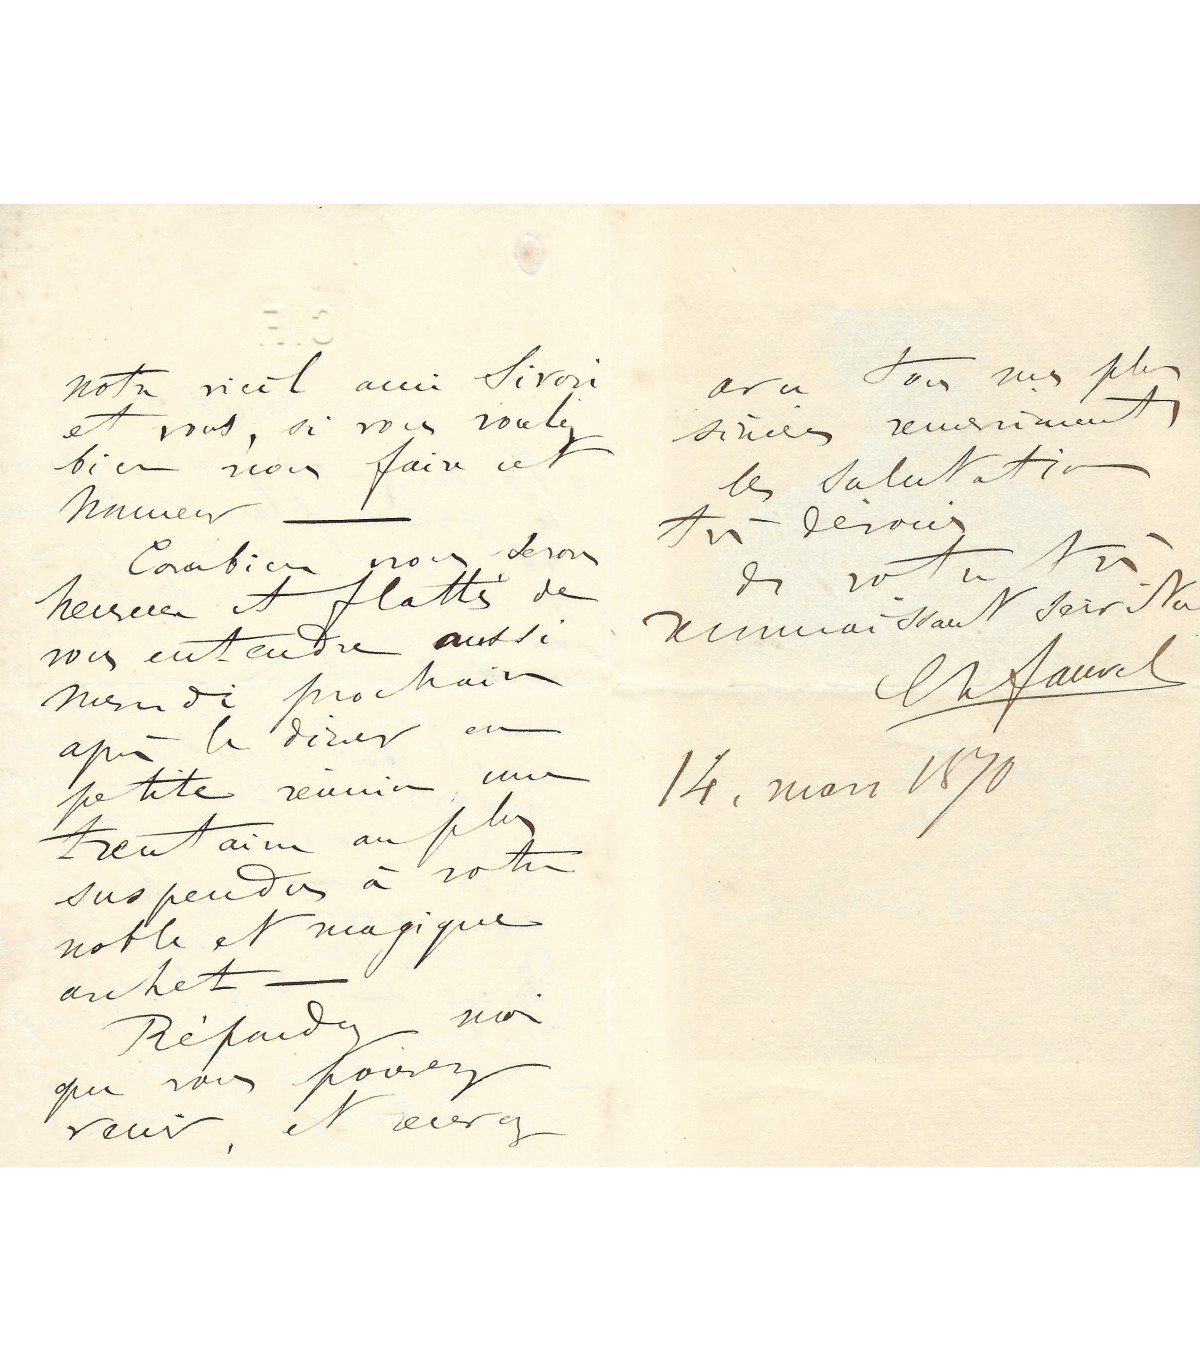 notre vieil ami Sivori
et vous, si vous voulez
bien nous faire cet
honneur —
Combien nous serons
heureux et flattés de
vous entendre aussi
mercredi prochain
après le dîner en
petite réunion une
trentaine au plus
suspendus à votre
noble et magique
archet —
Répondez moi
que vous pouvez
venir, et recevez
avec tous mes plus
sincères remerciments
les salutations
très dévouées
de votre très
reconnaissant serviteur
Ch Fauvel
14. mars 1870